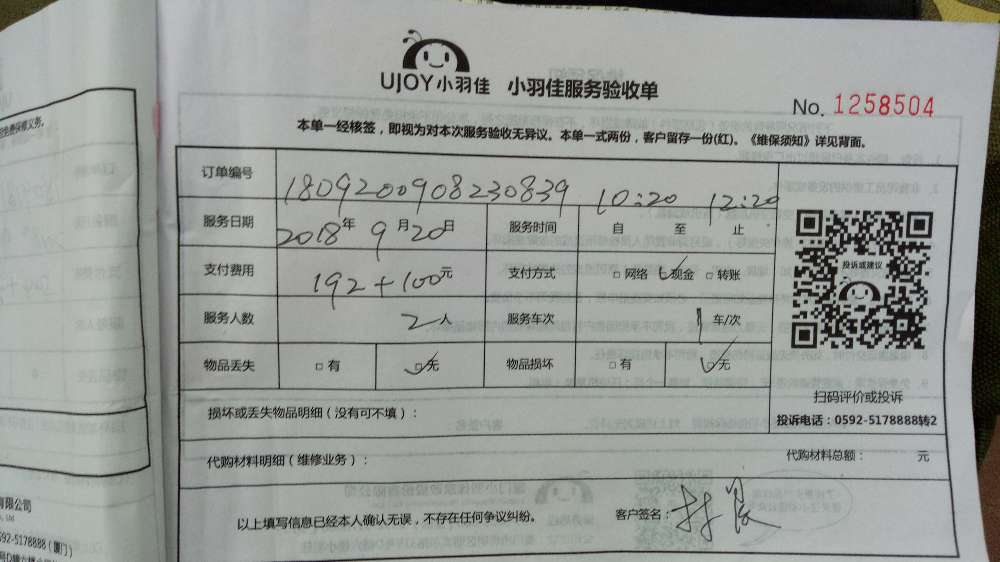 UJOY小羽佳 小羽佳服务验收单
No. 1258504
本单一经核签，即视为对本次服务验收无异议。本单一式两份，客户留存一份(红)。《维保须知》详见背面。
订单编号 1809200908230839 10:20 12:20
服务日期 2018年9月20日 服务时间 自 至 止
支付费用 192+100元 支付方式 □网络 ☑现金 □转账
服务人数 2人 服务车次 1车/次
物品丢失 □有 ☑无 物品损坏 □有 ☑无
投诉或建议
扫码评价或投诉
投诉电话：0592-5178888转2
损坏或丢失物品明细（没有可不填）：
代购材料明细（维修业务）： 代购材料总额： 元
以上填写信息已经本人确认无误，不存在任何争议纠纷。 客户签名：
免费保修义务。
有限公司
., Ltd
592-5178888（厦门）